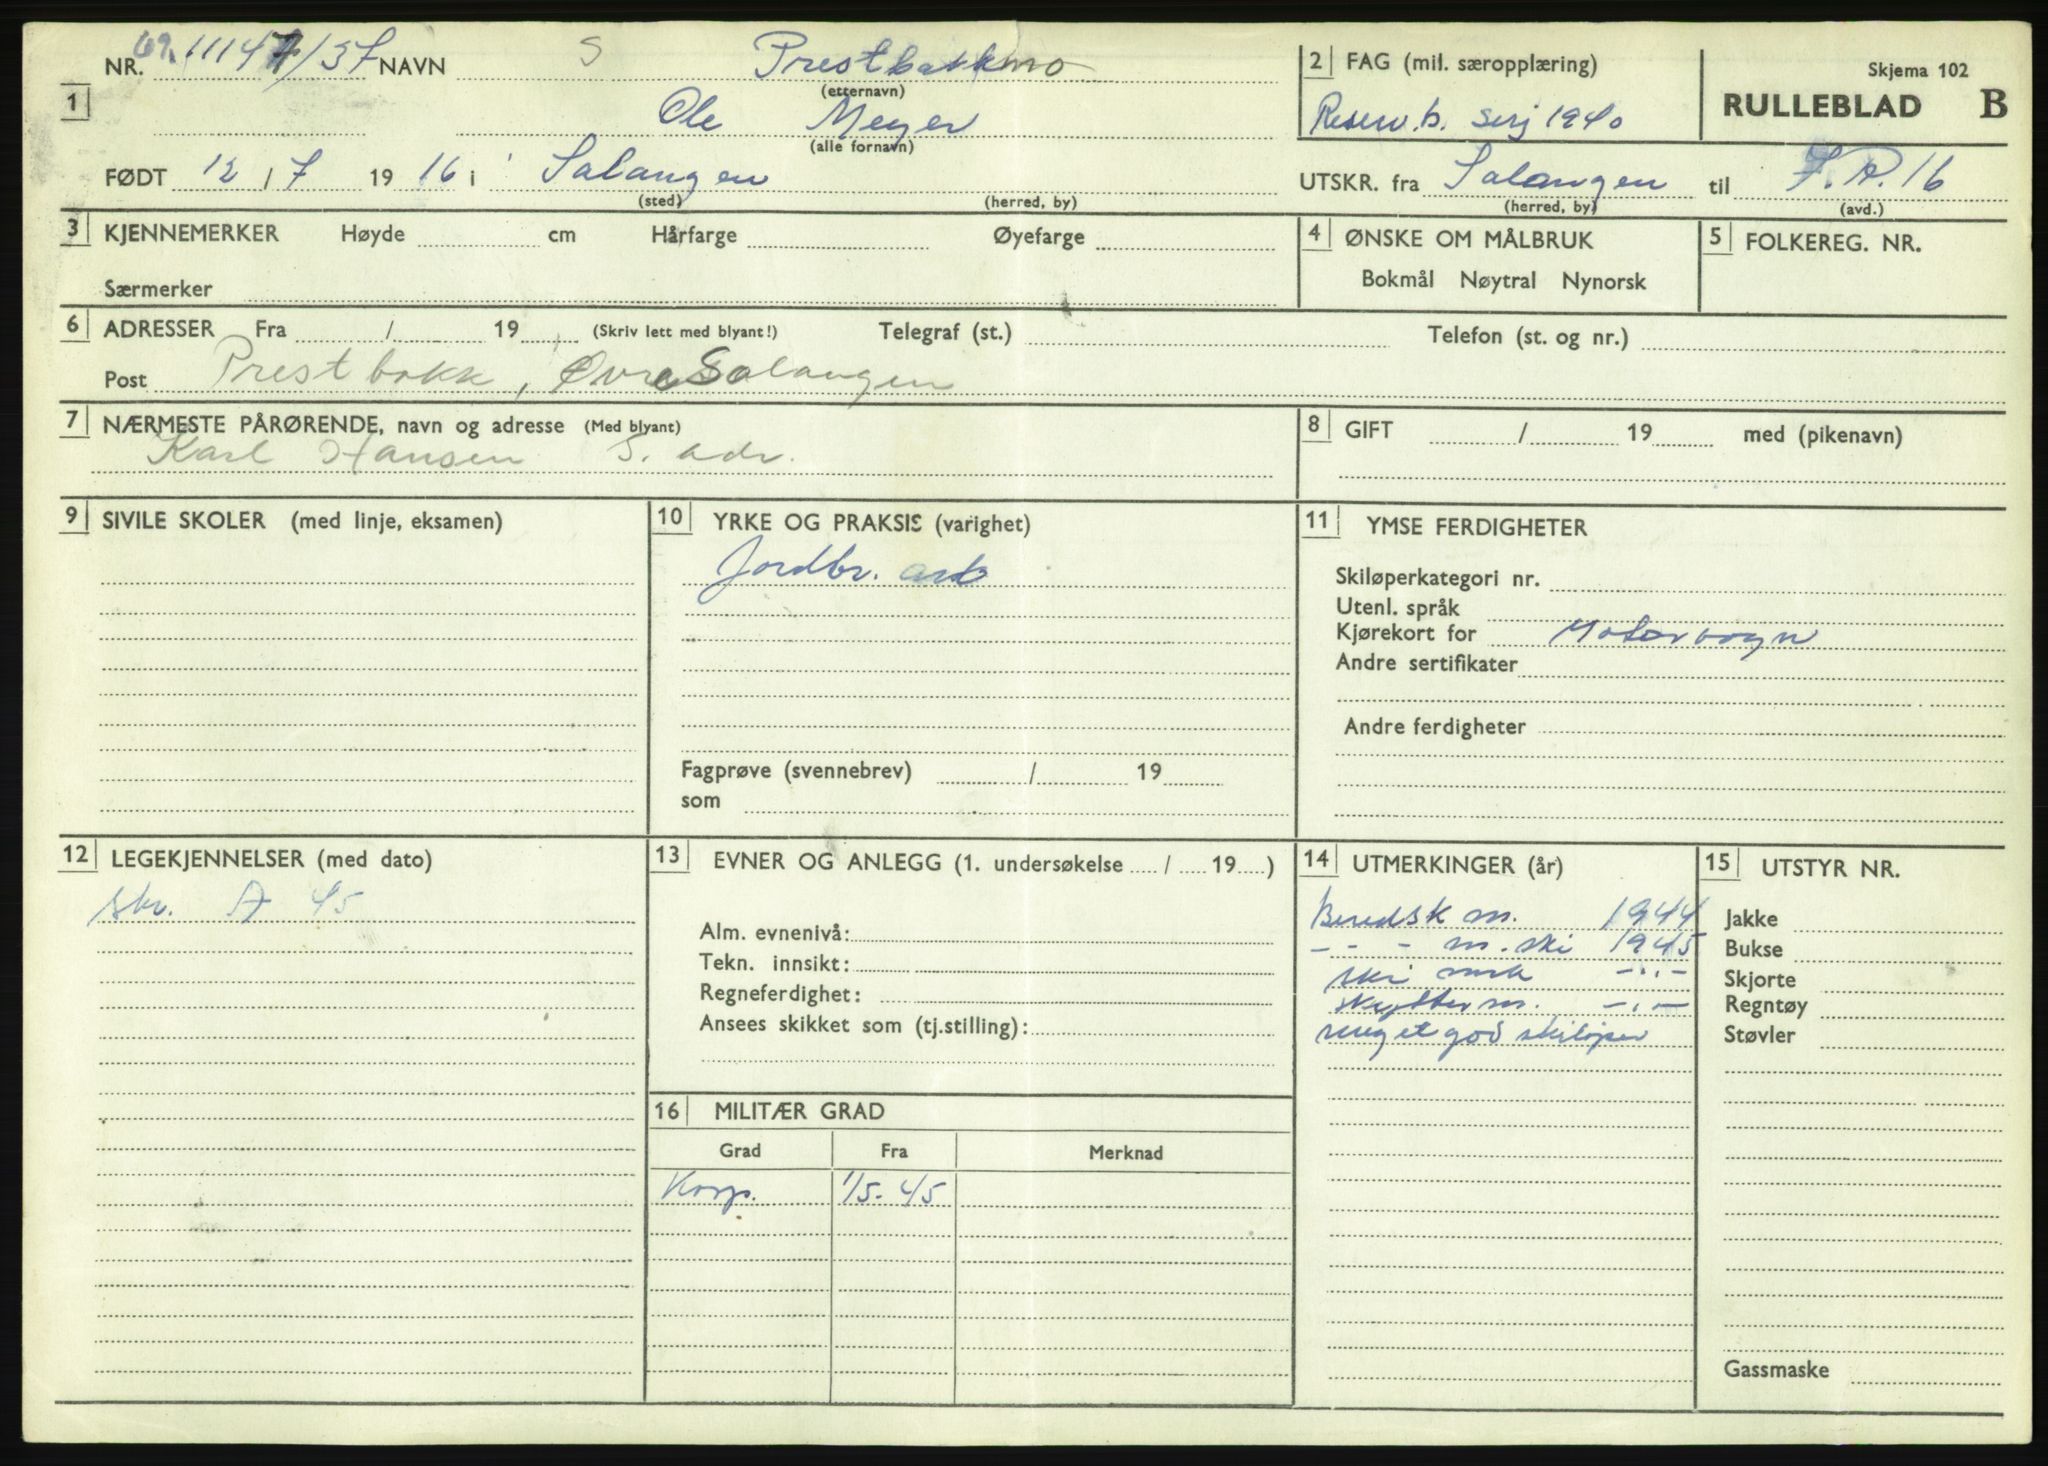 NR. 69. 11147/37 NAVN S Prestbakkmo
(etternavn)
2 FAG (mil. særopplæring)
Skjema 102
RULLEBLAD B
1
Ole Meyer
(alle fornavn)
Reserv. b. serj 1940
FØDT 12 / 7 1916 i Salangen
(sted) (herred, by)
UTSKR. fra Salangen til I.R. 16
(herred, by) (avd.)
3 KJENNEMERKER Høyde cm Hårfarge Øyefarge
Særmerker
4 ØNSKE OM MÅLBRUK
Bokmål Nøytral Nynorsk
5 FOLKEREG. NR.
6 ADRESSER Fra / 19 (Skriv lett med blyant!) Telegraf (st.) Telefon (st. og nr.)
Post Prestbakk, Øvre Salangen
7 NÆRMESTE PÅRØRENDE, navn og adresse (Med blyant)
Karl Hansen S. adr.
8 GIFT / 19 med (pikenavn)
9 SIVILE SKOLER (med linje, eksamen)
10 YRKE OG PRAKSIS (varighet)
Jordbr. arb
Fagprøve (svennebrev) / 19
som
11 YMSE FERDIGHETER
Skiløperkategori nr.
Utenl. språk
Kjørekort for Motorvogn
Andre sertifikater
Andre ferdigheter
12 LEGEKJENNELSER (med dato)
skr. A 45
13 EVNER OG ANLEGG (1. undersøkelse / 19 )
Alm. evnenivå:
Tekn. innsikt:
Regneferdighet:
Ansees skikket som (tj.stilling):
14 UTMERKINGER (år)
Beredsk m. 1944
- - - m. ski 1945
ski merk -..-
skytter m. -.-
meget god skiløper
15 UTSTYR NR.
Jakke
Bukse
Skjorte
Regntøy
Støvler
Gassmaske
16 MILITÆR GRAD
Grad Fra Merknad
Korp. 1/5-45